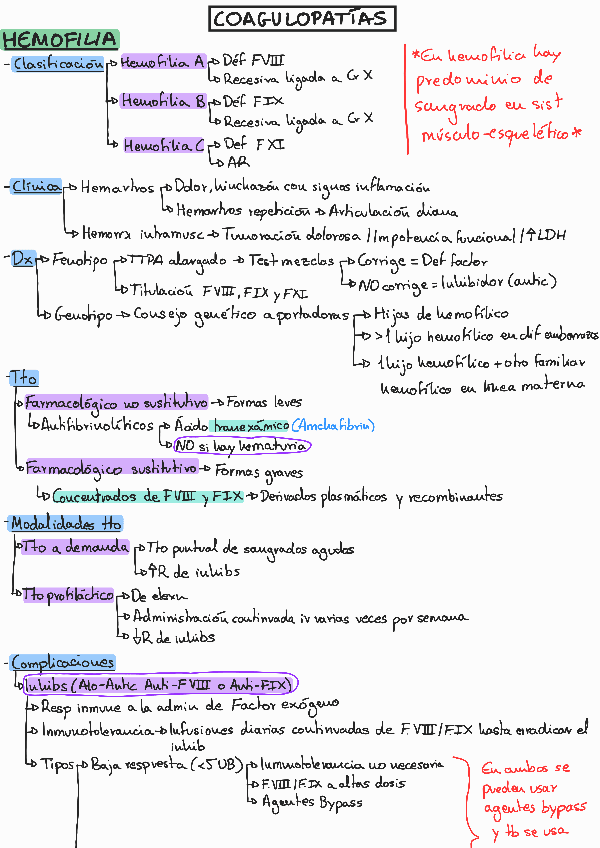 COAGULOPATÍAS
HEMOFILIA
- Clasificación → Hemofilia A → Déf FVIII
→ Recesiva ligada a Cr X
→ Hemofilia B → Déf FIX
→ Recesiva ligada a Cr X
→ Hemofilia C → Def FXI
→ AR
*En hemofilia hay
predominio de
sangrado en sist
músculo-esquelético*
- Clínica → Hemartros → Dolor, hinchazón con signos inflamación
→ Hemartros repetición → Articulación diana
→ Hemorrx intramusc → Tumoración dolorosa / Impotencia funcional / ↑LDH
- Dx → Fenotipo → TTPA alargado → Test mezclas → Corrige = Def factor
→ NO corrige = Inhibidor (antic)
→ Titulación FVIII, FIX y FXI
→ Genotipo → Consejo genético a portadoras → Hijas de hemofílico
→ >1 hijo hemofílico en dif embarazos
→ 1 hijo hemofílico + otro familiar
hemofílico en línea materna
- Tto
→ Farmacológico no sustitutivo → Formas leves
→ Antifibrinolíticos → Ácido tranexámico (Amchafibrin)
→ NO si hay hematuria
→ Farmacológico sustitutivo → Formas graves
→ Concentrados de FVIII y FIX → Derivados plasmáticos y recombinantes
- Modalidades tto
→ Tto a demanda → Tto puntual de sangrados agudos
→ ↑R de inhibs
→ Tto profiláctico → De elexn
→ Administración continuada iv varias veces por semana
→ ↓R de inhibs
- Complicaciones
→ Inhibs (Alo-Antic Anti-FVIII o Anti-FIX)
→ Resp inmune a la admin de Factor exógeno
→ Inmunotolerancia → Infusiones diarias continuadas de FVIII/FIX hasta erradicar el
inhib
→ Tipos → Baja respuesta (<5UB) → Inmunotolerancia no necesaria
→ FVIII/FIX a altas dosis
→ Agentes Bypass
En ambos se
pueden usar
agentes bypass
y tb se usa